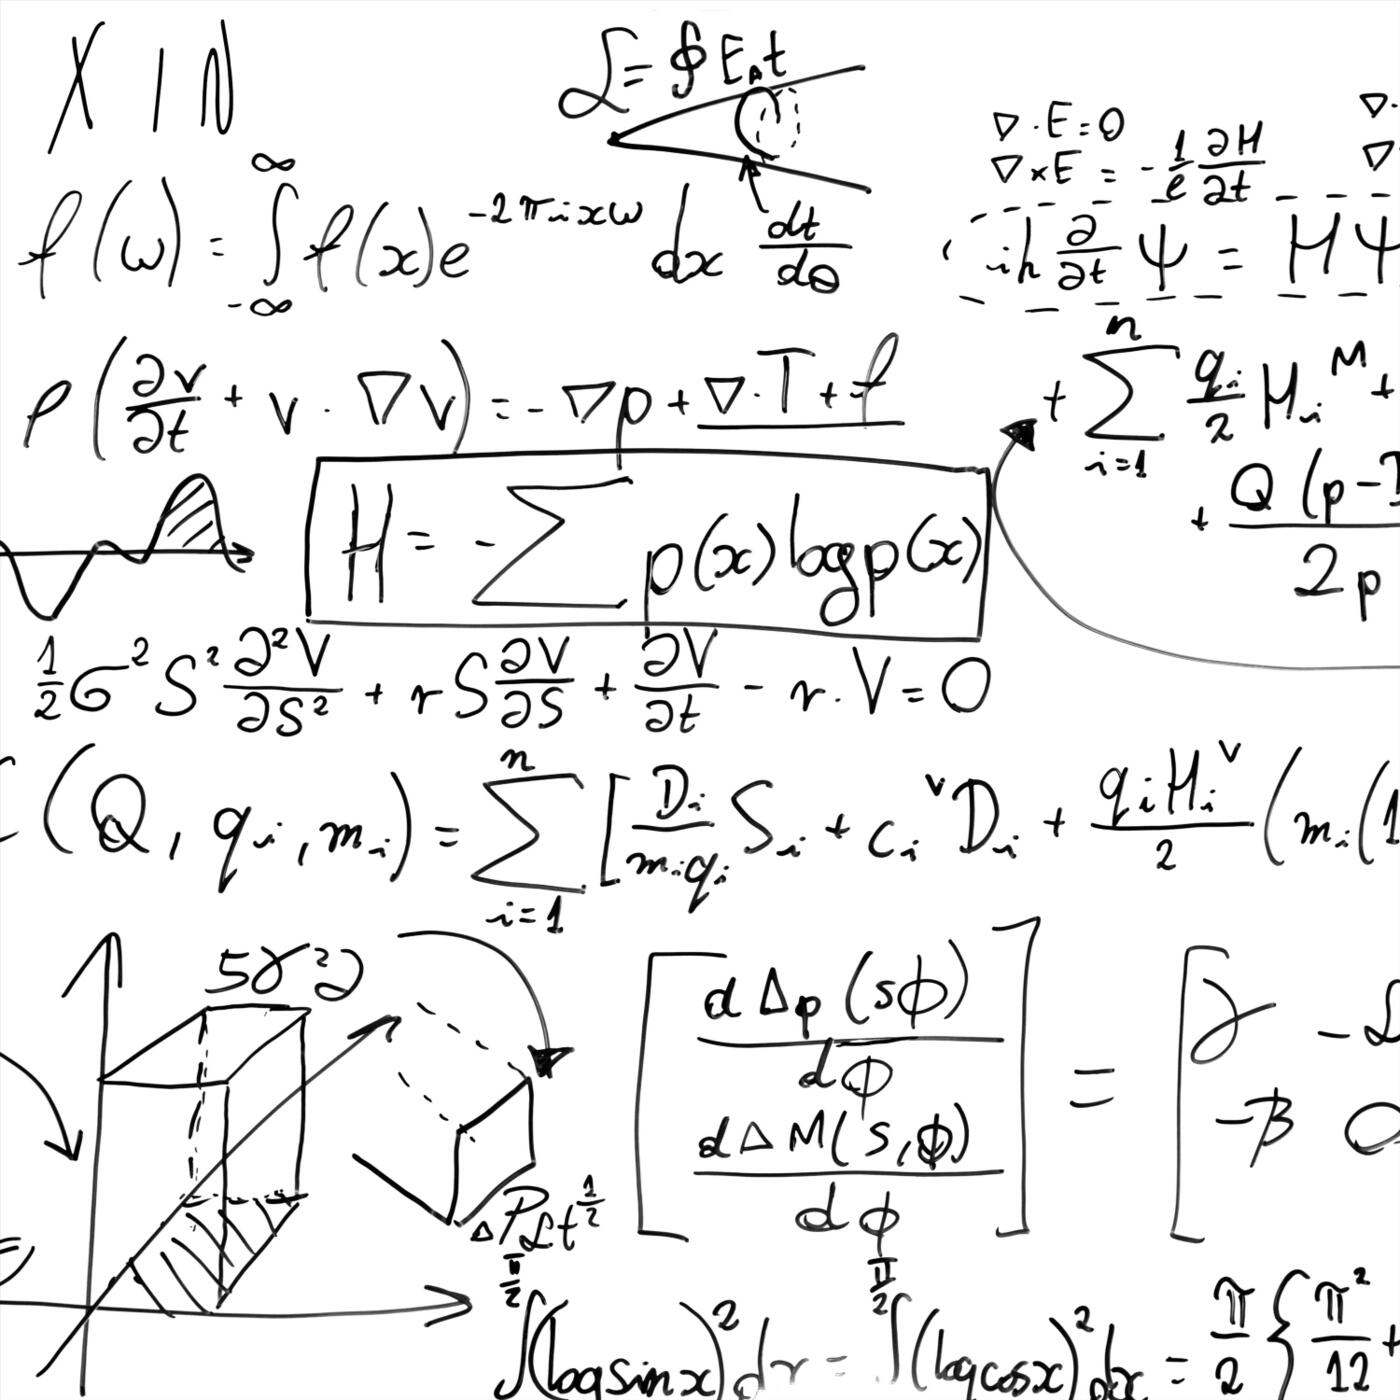 X I N
ℒ = ∮ E₀t
dt/dθ
∇·E=0
∇×E = -1/e ∂H/∂t
∇·
∇
f(ω) = ∫_{-∞}^{∞} f(x)e^{-2πixω} dx
iħ ∂/∂t Ψ = HΨ
ρ(∂v/∂t + v · ∇v) = -∇p + ∇·T + f
+ ∑_{i=1}^{n} q_i/2 H_i^M +
+ Q(p-1/2p
H = -∑ p(x) log p(x)
1/2 σ² S² ∂²V/∂S² + rS ∂V/∂S + ∂V/∂t - r·V = 0
C(Q, q_i, m_i) = ∑_{i=1}^{n} [D_i/(m_i q_i) S_i + c_i^v D_i + q_i H_i^v/2 (m_i(1
5γ²∂
[dΔp(sϕ)/dϕ
dΔM(s,ϕ)/dϕ] = [γ -L
-β 0
ΔPLt^{1/2}
∫^{π/2} (log sin x)² dx = ∫^{π/2} (log cos x)² dx = π/2 {π²/12 +